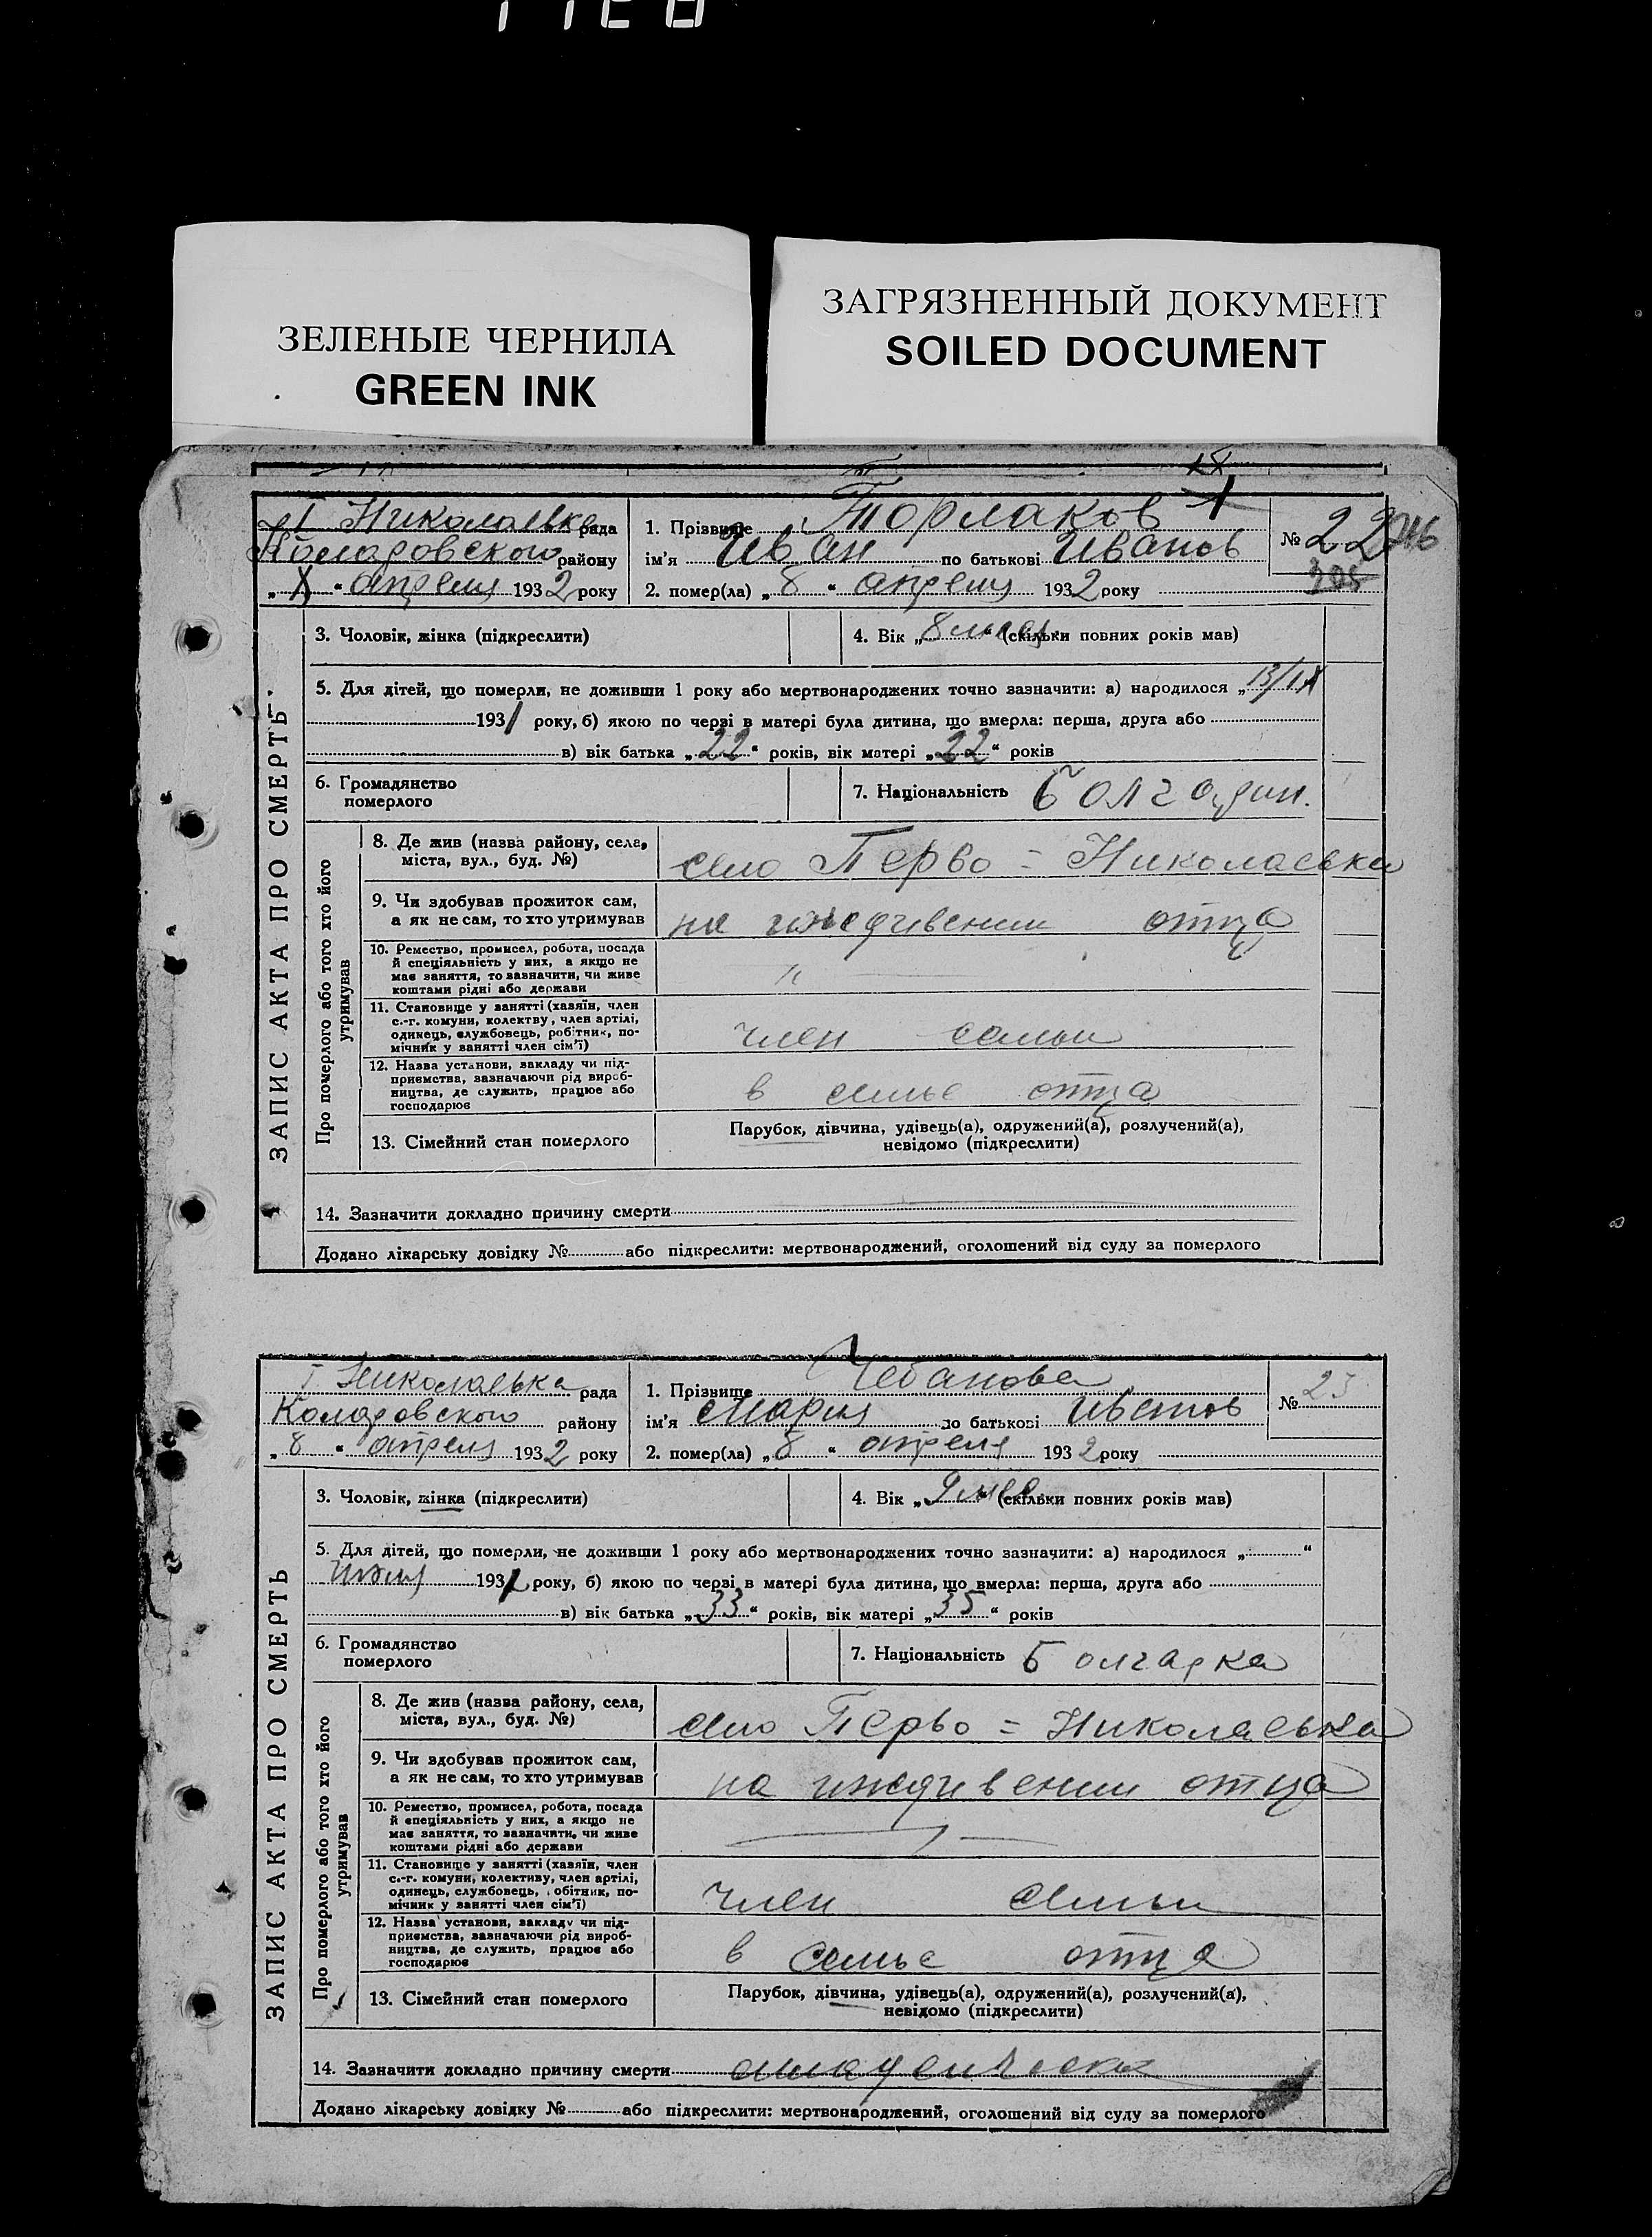 ЗЕЛЕНЫЕ ЧЕРНИЛА
GREEN INK
ЗАГРЯЗНЕННЫЙ ДОКУМЕНТ
SOILED DOCUMENT
ЗАПИС АКТА ПРО СМЕРТЬ
I Николаевка рада
Коларовского району
" " апреля 1932 року
1. Прізвище Торлаков
ім'я Иван по батькові Иванов
2. помер(ла) „8“ апреля 1932 року
№ 22
3. Чоловік, жінка (підкреслити)
4. Вік „8 мес“ (скільки повних років мав)
5. Для дітей, що померли, не доживши 1 року або мертвонароджених точно зазначити: а) народилося „13/IX
1931 року, б) якою по черзі в матері була дитина, що вмерла: перша, друга або
в) вік батька „22“ років, вік матері „22“ років
6. Громадянство
померлого
7. Національність болгарин.
Про померлого або того хто його
утримував
8. Де жив (назва району, села,
міста, вул., буд. №)
село Перво=Николаевка
9. Чи здобував прожиток сам,
а як не сам, то хто утримував
на иждивении отца
10. Ремество, промисел, робота, посада
й спеціяльність у них, а якщо не
має заняття, то зазначити, чи живе
коштами рідні або держави
11. Становище у занятті (хазяїн, член
с.-г. комуни, колективу, член артілі,
одинець, службовець, робітник, по-
мічник у занятті член сім'ї)
член семьи
12. Назва установи, закладу чи під-
приємства, зазначаючи рід вироб-
ництва, де служить, працює або
господарює
в семье отца
13. Сімейний стан померлого
Парубок, дівчина, удівець(а), одружений(а), розлучений(а),
невідомо (підкреслити)
14. Зазначити докладно причину смерти
Додано лікарську довідку № або підкреслити: мертвонароджений, оголошений від суду за померлого
ЗАПИС АКТА ПРО СМЕРТЬ
I Николаевка рада
Коларовского району
„8“ апреля 1932 року
1. Прізвище Чебанова
ім'я Мария по батькові Иванов
2. помер(ла) „8“ апреля 1932 року
№ 23
3. Чоловік, жінка (підкреслити)
4. Вік „9 мес“ (скільки повних років мав)
5. Для дітей, що померли, не доживши 1 року або мертвонароджених точно зазначити: а) народилося „ “
193 року, б) якою по черзі в матері була дитина, що вмерла: перша, друга або
в) вік батька „33“ років, вік матері „35“ років
6. Громадянство
померлого
7. Національність Болгарка
Про померлого або того хто його
утримував
8. Де жив (назва району, села,
міста, вул., буд. №)
село Перво=Николаевка
9. Чи здобував прожиток сам,
а як не сам, то хто утримував
на иждивении отца
10. Ремество, промисел, робота, посада
й спеціяльність у них, а якщо не
має заняття, то зазначити, чи живе
коштами рідні або держави
11. Становище у занятті (хазяїн, член
с.-г. комуни, колективу, член артілі,
одинець, службовець, обітник, по-
мічник у занятті член сім'ї)
член семьи
12. Назва установи, закладу чи під-
приємства, зазначаючи рід вироб-
ництва, де служить, працює або
господарює
в семье отца
13. Сімейний стан померлого
Парубок, дівчина, удівець(а), одружений(а), розлучений(а),
невідомо (підкреслити)
14. Зазначити докладно причину смерти
Додано лікарську довідку № або підкреслити: мертвонароджений, оголошений від суду за померлого